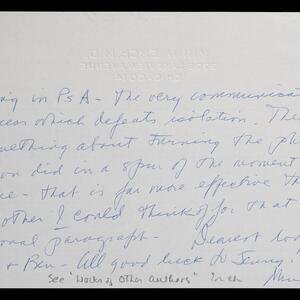 in PsA - The very communicat
cess which defeats isolation. The
mething about turning the ph
on did in a spur of the moment
e - that is far more effective th
other I could think of for that
onal paragraph - Dearest lo
& Ben - All good luck to Jenny.
See "Works of Other Authors" in ch